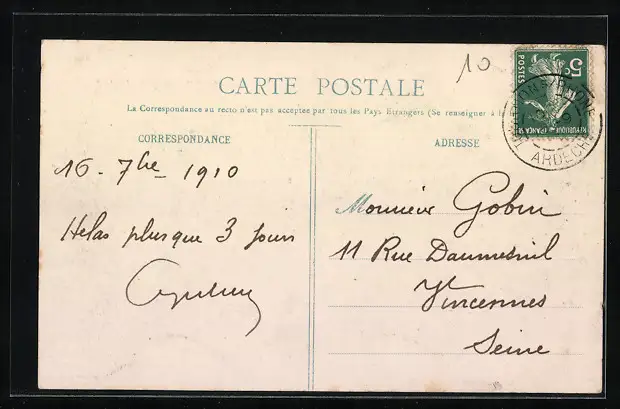 10
CARTE POSTALE
La Correspondance au recto n'est pas acceptée par tous les Pays Etrangers (Se renseigner à la
CORRESPONDANCE
ADRESSE
5c
POSTES
REPUBLIQUE FRANÇAISE
ARDECHE
16 - 7bre 1910
Helas plus que 3 jours
Monsieur Gobin
11 Rue Daumesnil
Vincennes
Seine